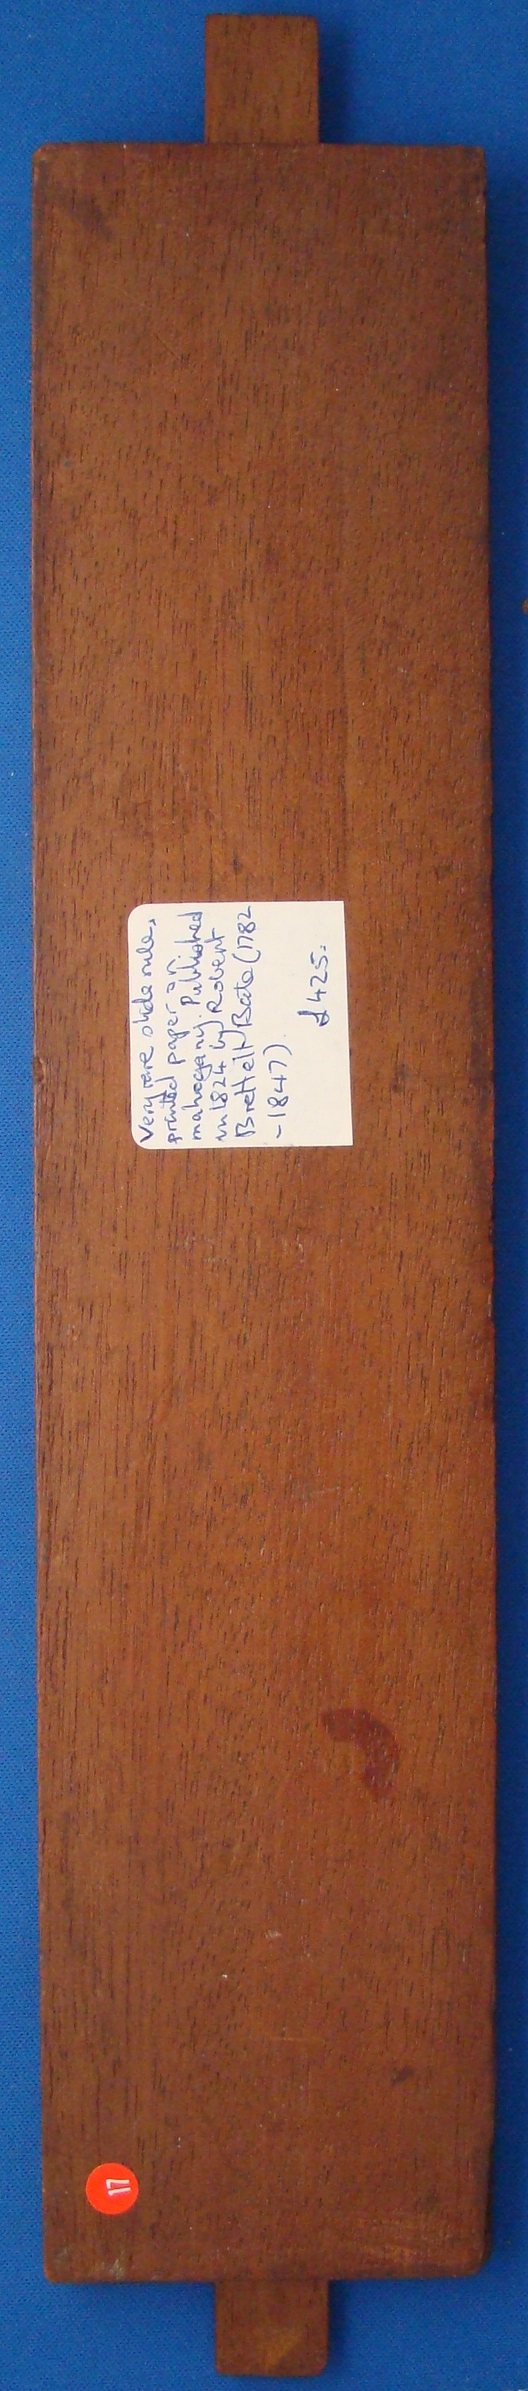 Very rare slide rule,
printed paper on
mahogany. Published
in 1824 by Robert
Brettell Bate (1782
-1847).
£425.
17